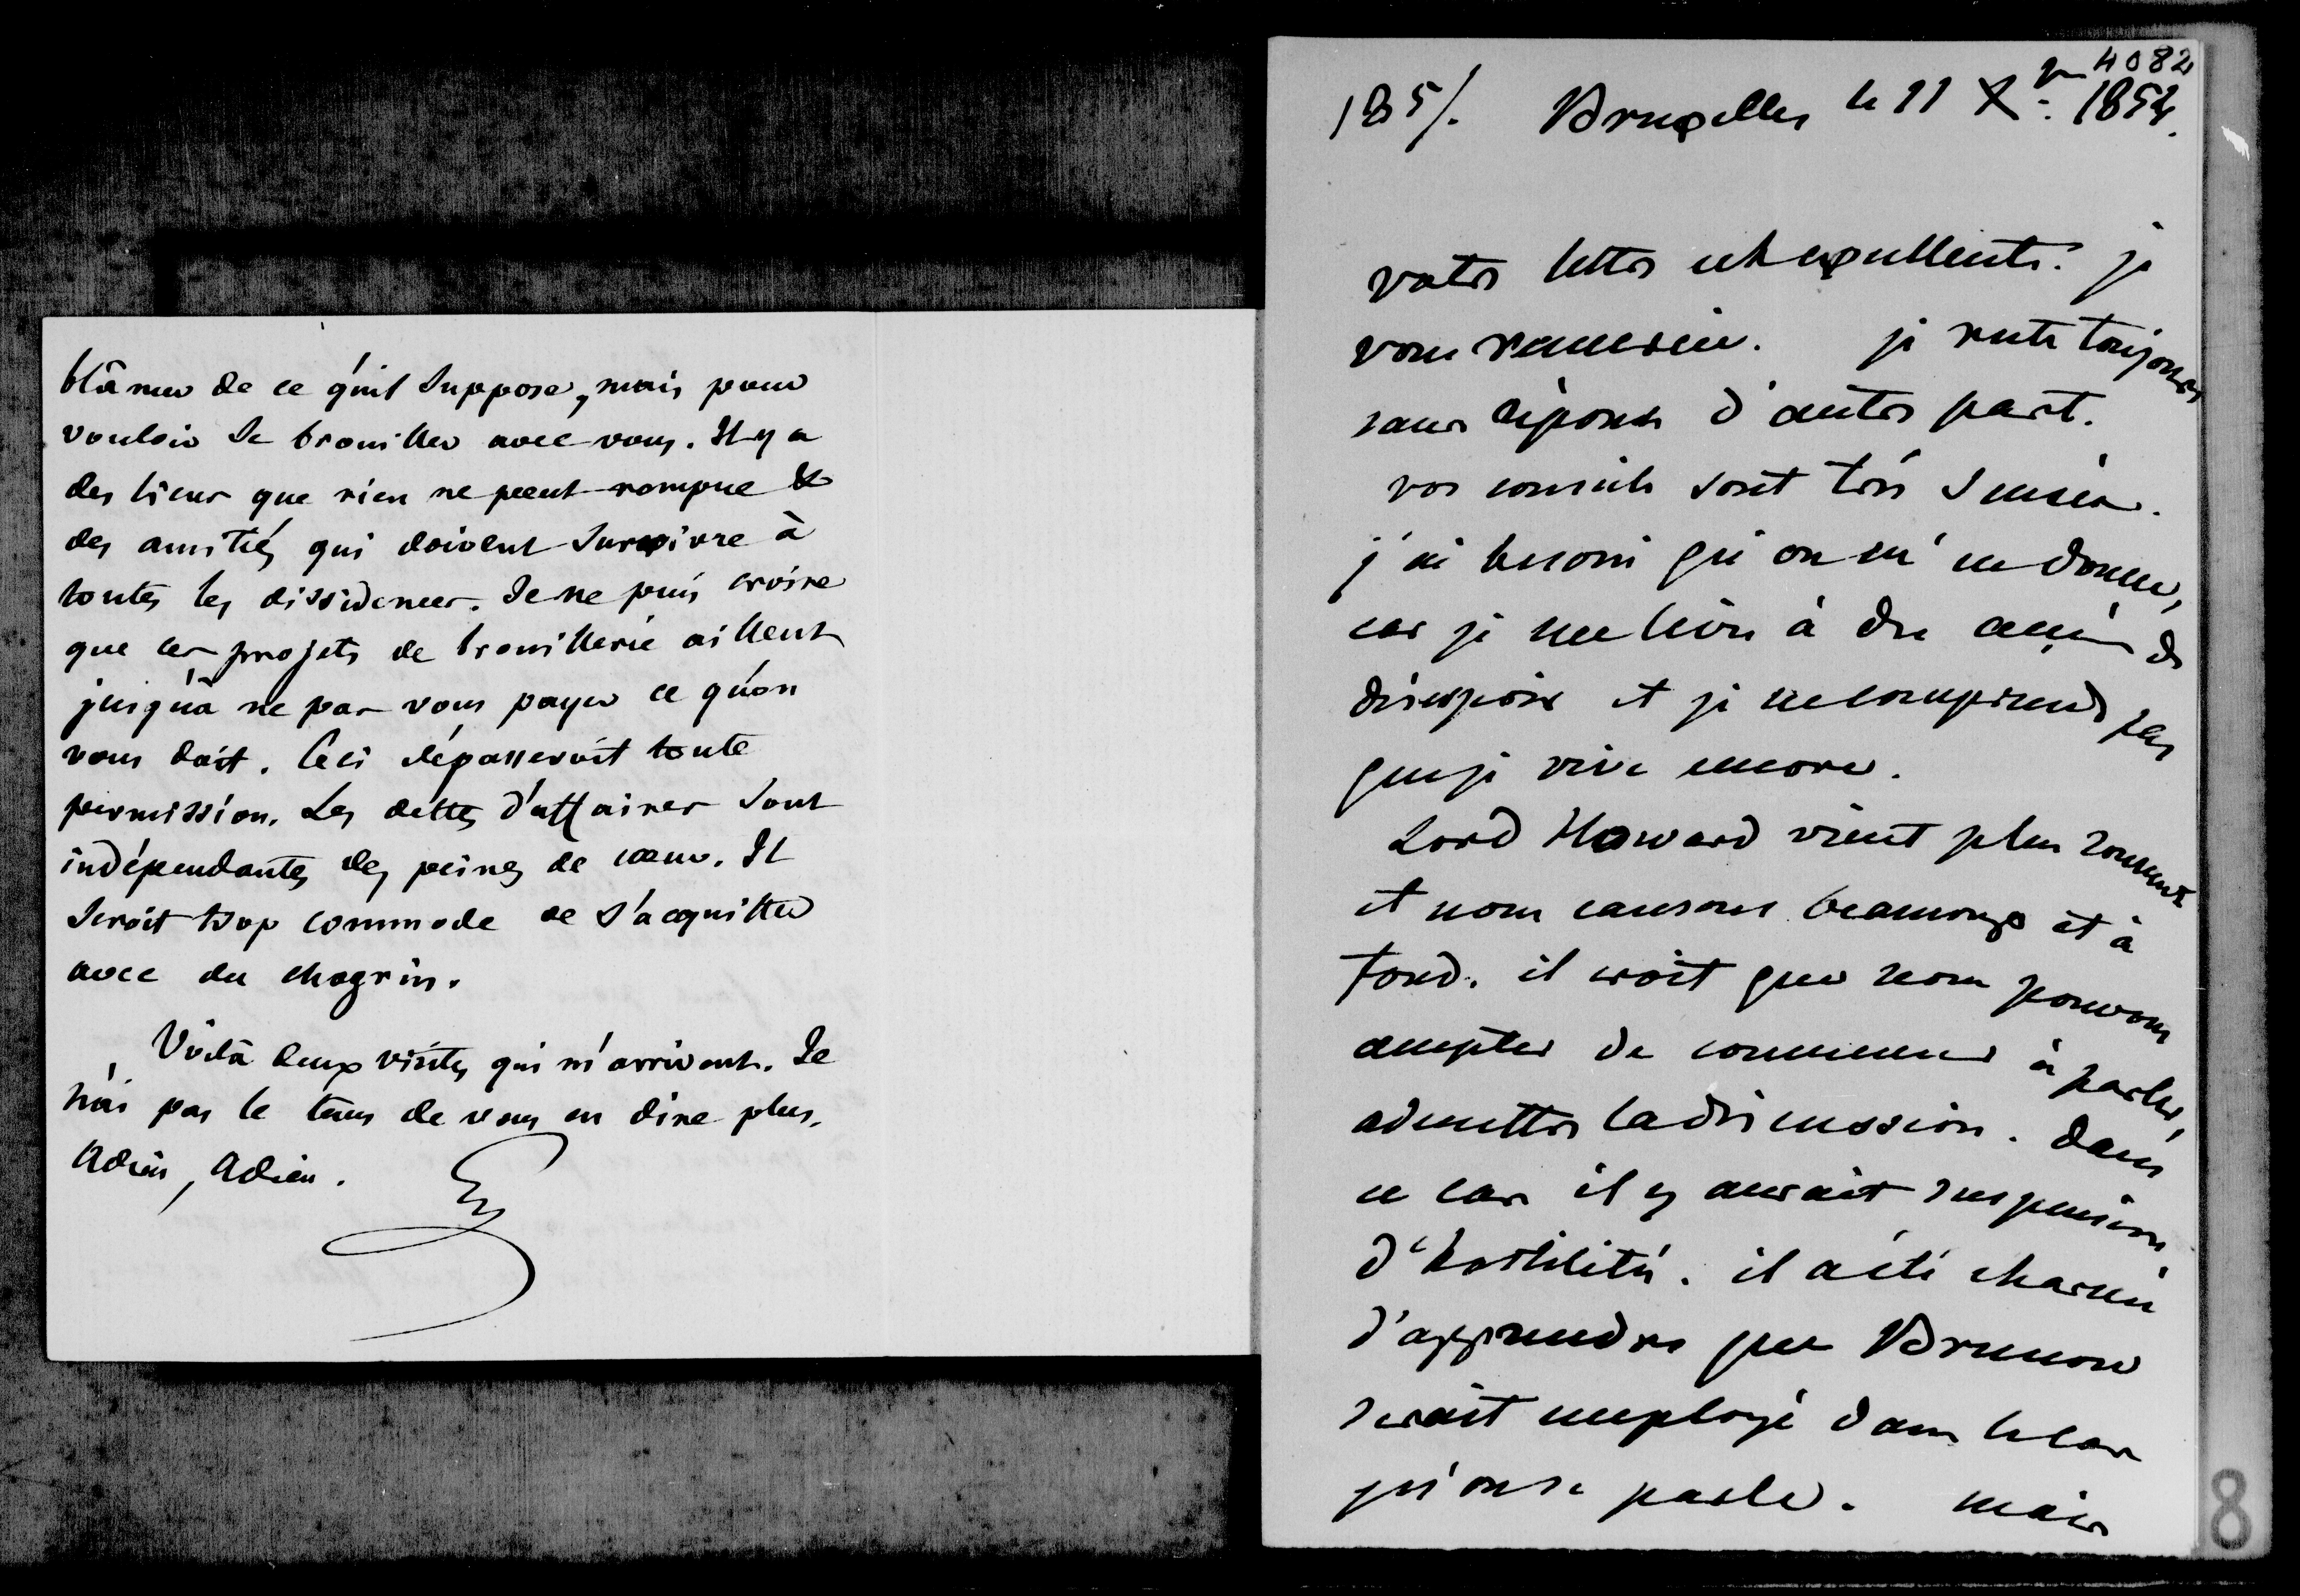 blâmer de ce qu'il suppose, mais pour
vouloir se brouiller avec vous. Il y a
des liens que rien ne peut rompre &
des amitiés qui doivent survivre à
toutes les dissidences. Je ne puis croire
que ces projets de brouillerie aillent
jusqu'à ne pas vous payer ce qu'on
vous doit. Ceci dépasseroit toute
permission. Les dettes d'affaires sont
indépendantes des peines de cœur. Il
seroit trop commode de s'acquitter
avec du chagrin.
Voilà deux visites qui m'arrivent. Je
n'ai pas le tems de vous en dire plus.
Adieu, Adieu.
4082
185/. Bruxelles le 11 Xbre 1854.
votre lettre est excellente. je
vous remercie. je reste toujours
sans réponse d'autre part.
vos conseils sont très sensés.
j'ai besoin qu'on m'en donne,
car je me livre à des accès de
désespoir et je ne comprends pas
que je vive encore.
Lord Howard vient plus souvent
et nous causons beaucoup et à
fond. il croit que nous pouvons
accepter de commencer à parler,
admettre la discussion. dans
ce cas il y aurait suspension
d'hostilités. il a été charmé
d'apprendre que Brunow
serait employé dans le cas
qu'on se parle. mais
8